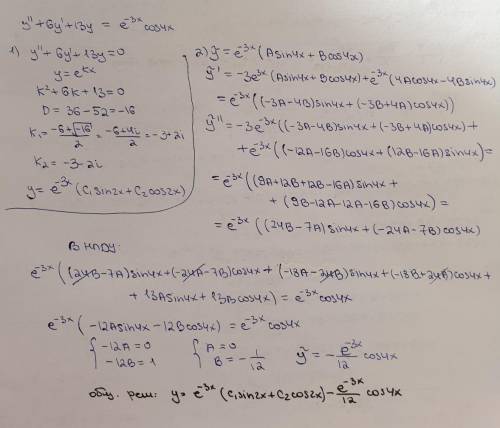 y'' + 6y' + 13y = e^{-3x} cos4x
1) y'' + 6y' + 13y = 0
y = e^{kx}
k² + 6k + 13 = 0
D = 36 - 52 = -16
k₁ = (-6 + √-16)/2 = (-6 + 4i)/2 = -3 + 2i
k₂ = -3 - 2i
y = e^{-3x}(C₁sin2x + C₂cos2x)
2) ỹ = e^{-3x}(Asin4x + Bcos4x)
ỹ' = -3e^{-3x}(Asin4x + Bcos4x) + e^{-3x}(4Acos4x - 4Bsin4x)
= e^{-3x}((-3A-4B)sin4x + (-3B+4A)cos4x))
ỹ'' = -3e^{-3x}((-3A-4B)sin4x + (-3B+4A)cos4x) +
+ e^{-3x}((-12A-16B)cos4x + (12B-16A)sin4x) =
= e^{-3x}((9A+12B+12B-16A)sin4x +
+ (9B-12A-12A-16B)cos4x) =
= e^{-3x}((24B-7A)sin4x + (-24A-7B)cos4x)
В НЛДУ:
e^{-3x}((24B-7A)sin4x + (-24A-7B)cos4x + (-18A-24B)sin4x + (-18B+24A)cos4x +
+ 13Asin4x + 13Bcos4x) = e^{-3x}cos4x
e^{-3x}(-12Asin4x - 12Bcos4x) = e^{-3x}cos4x
{ -12A = 0 { A = 0
{ -12B = 1 { B = -1/12 ỹ = -e^{-3x}/12 cos4x
общ. реш: y = e^{-3x}(C₁sin2x + C₂cos2x) - e^{-3x}/12 cos4x